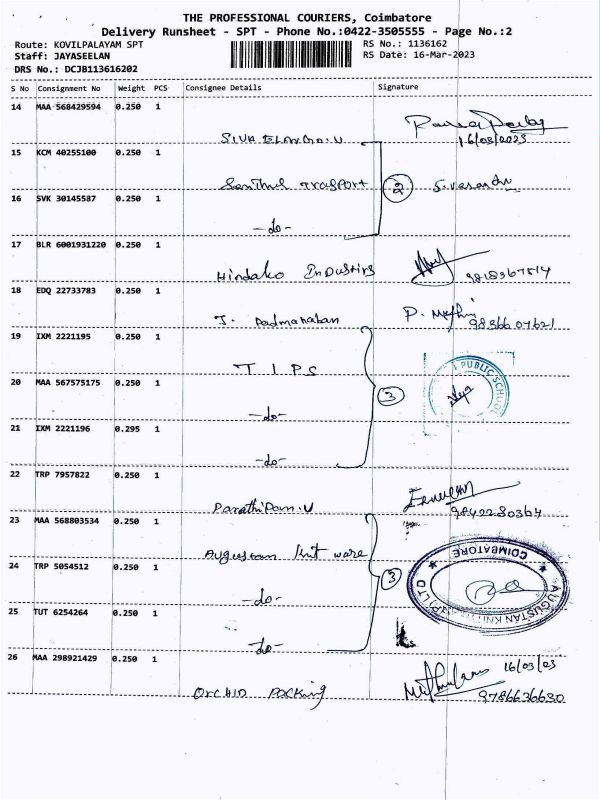 THE PROFESSIONAL COURIERS, Coimbatore
Delivery Runsheet - SPT - Phone No.:0422-3505555 - Page No.:2
Route: KOVILPALAYAM SPT
RS No.: 1136162
Staff: JAYASEELAN
RS Date: 16-Mar-2023
DRS No.: DCJB113616202
S No Consignment No Weight PCS Consignee Details Signature
14 MAA 568429594 0.250 1
SIVA ELANGO.V
16/03/2023
15 KCM 40255100 0.250 1
Senthil Trasport
2
16 SVK 30145587 0.250 1
-do-
17 BLR 6001931220 0.250 1
Hindako Industirs
18 EDQ 22733783 0.250 1
J. Padmanaban
P.
19 IXM 2221195 0.250 1
T I P S
20 MAA 567575175 0.250 1
-do-
3
PUBLIC SCHOOL
21 IXM 2221196 0.295 1
-do-
22 TRP 7957822 0.250 1
Parathipan.V
9842280364
23 MAA 568803534 0.250 1
Augustan knit ware
COIMBATORE
24 TRP 5054512 0.250 1
-do-
3
AUGUSTAN KNIT
25 TUT 6254264 0.250 1
-do-
26 MAA 298921429 0.250 1
16/03/03
ORCHID PACKING
9786636630